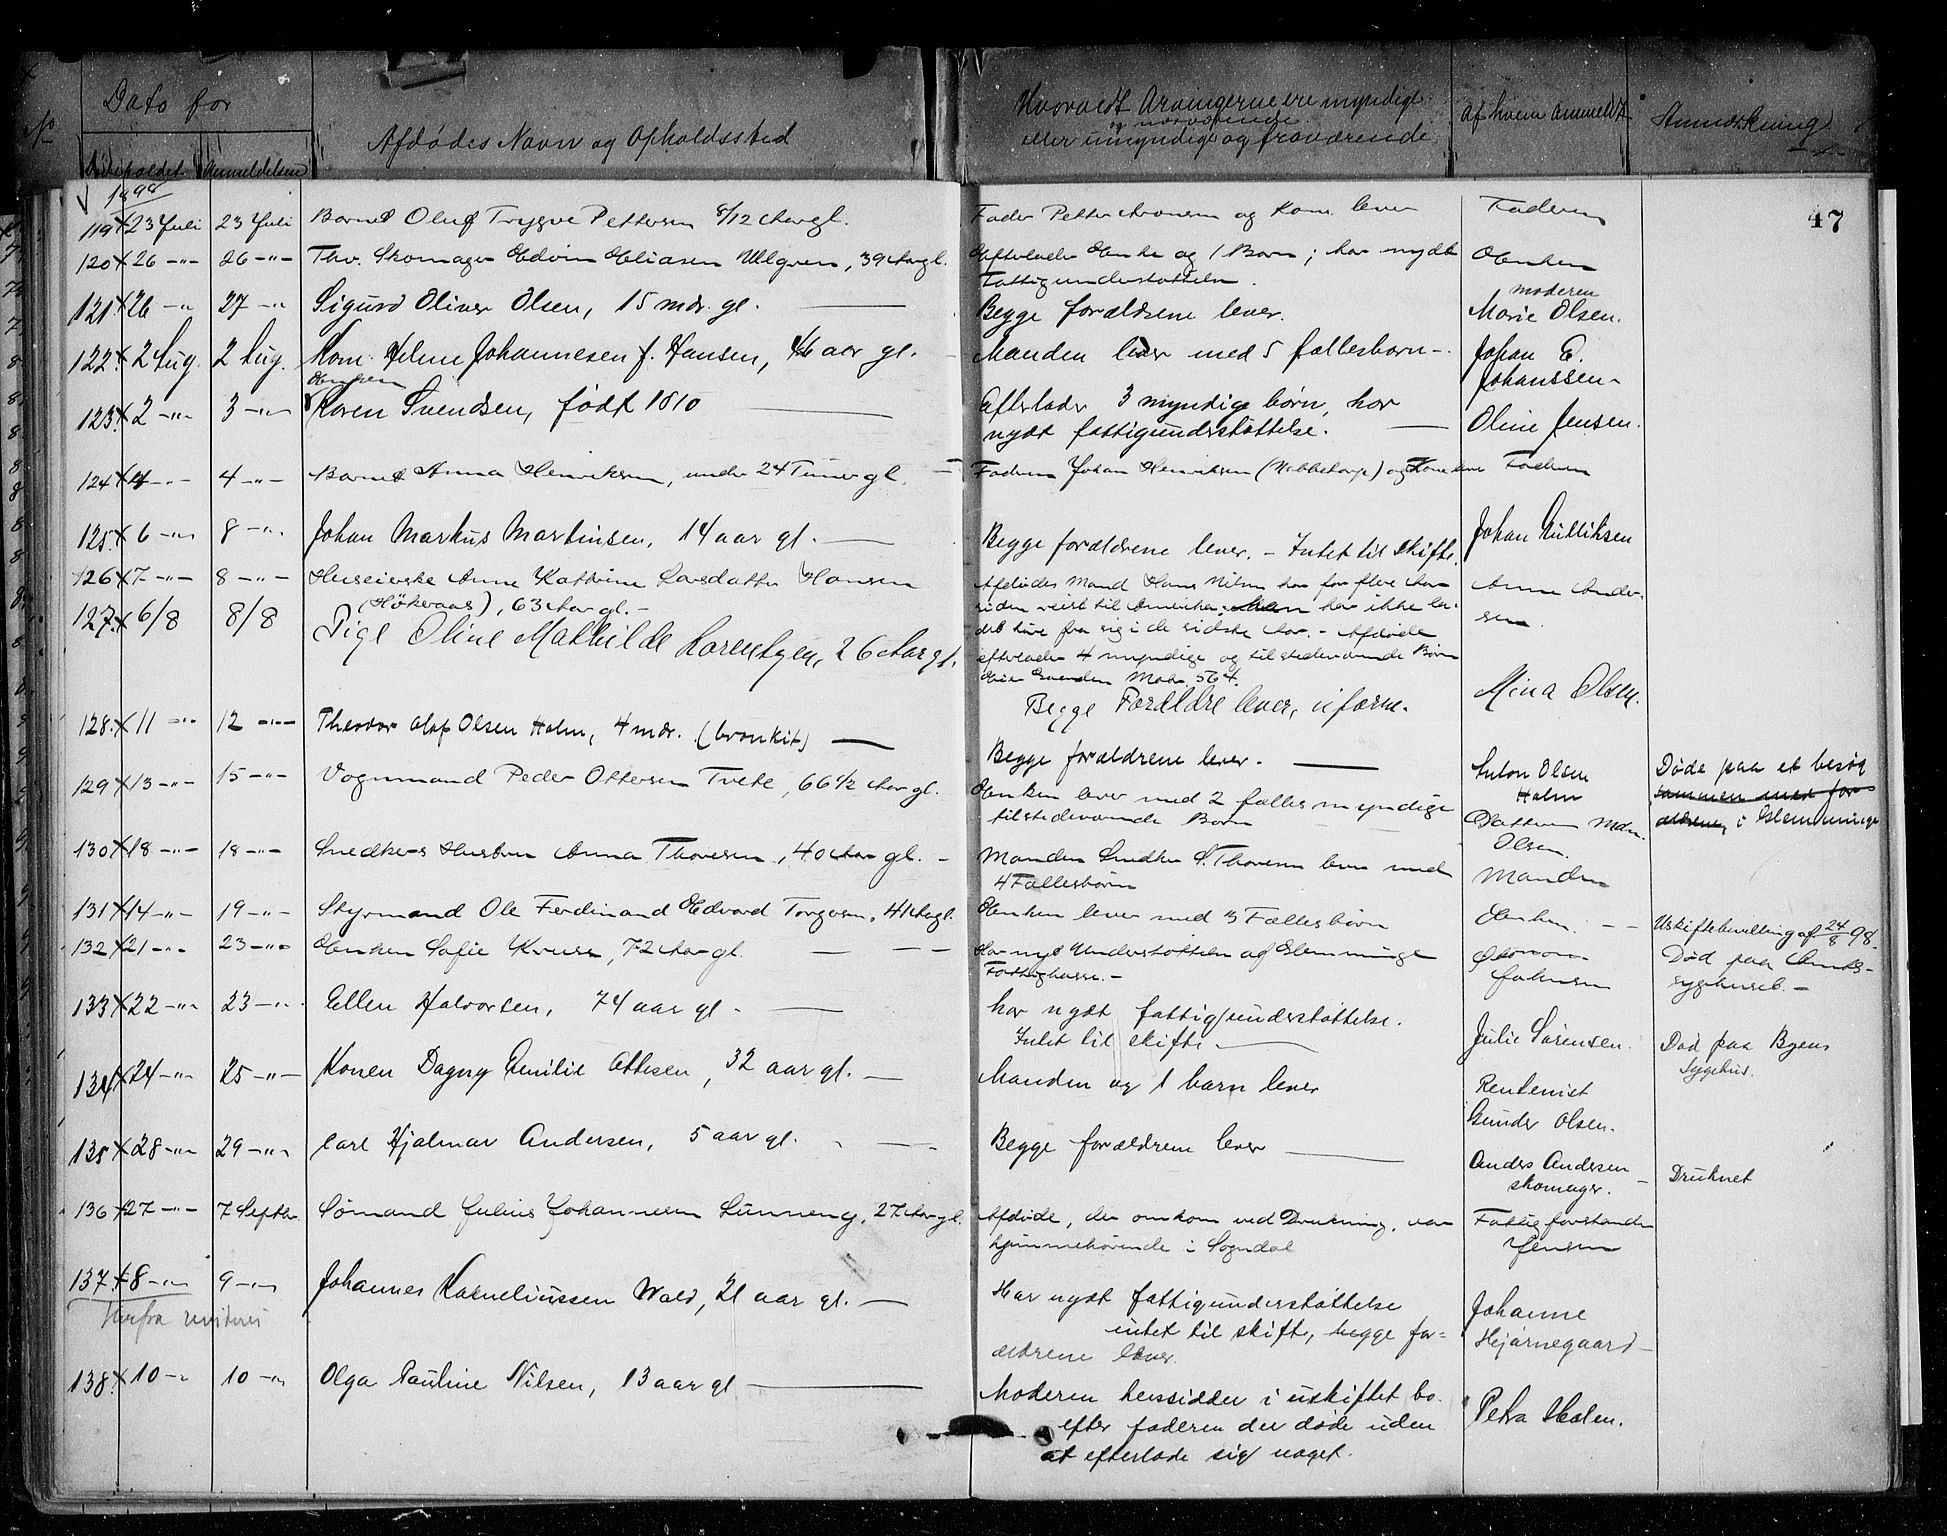 No
Dato for
Dødsfaldet Anmeldelsen
Afdødes Navn og Opholdssted
Hvorvidt Arvingerne ere myndige
og nærværende
eller umyndige og fraværende
Af hvem anmeldt
Anmærkning
47
1898
119 23 Juli 23 Juli Barnet Oluf Trygve Pettersen 8/12 Aar gl. Fader Petter Aronsen og Kone lever Faderen
120 26 -"- 26 -"- Fhv. Skomager Edvin Eliasen Ullgren, 39 Aar gl. Efterlader Enke og 1 Barn; har nydt Enken
Fattigunderstøttelse.
121 26 -"- 27 -"- Sigurd Oliver Olsen, 15 mdr. gl. — Begge forældrene lever. moderen
Marie Olsen.
122. 2 Aug. 2 Aug. Kone Helene Johannesen f. Hansen, 46 aar gl. Manden lever med 5 fællesbørn -. Johan E.
Johanssen -
123. 2 -"- 3 -"- Enken
Karen Svendsen, født 1810 — Efterlader 3 myndige børn, har
nydt fattigunderstøttelse. — Oline Jensen.
124 4 -"- 4 -"- Barnet Anna Henriksen, under 24 Timer gl. — Faderen Johan Henriksen (Nabbetorp) og Kone lever Faderen
125. 6 -"- 8 -"- Johan Markus Martinsen, 14 aar gl. — Begge forældrene lever. - Intet til skifte. Johan Gulliksen
126 7 -"- 8 -"- Huseierske Anne Kathrine Larsdatter Hansen
(Høkeraas), 63 Aar gl. - Afdødes Mand Hans Nilsen har for flere Aar
siden reist til Amerika; Man har ikke la-
det høre fra sig i de sidste Aar. - Afdøde
efterlader 4 myndige og tilstedeværende Børn
Eier Gaarden Matr. 564. Anne Ander-
sen.
127. 6/8 8/8 Pige Oline Mathilde Lorentzen, 26 Aar gl. Begge Forældre lever, uiførne. Mina Olsen.
128. 11 -"- 12 -"- Theodor Olaf Olsen Holm, 4 mdr. (bronkit) — Begge forældrene lever. — Anton Olsen
Holm Døde paa et besøg
sammen med for-
ældrene, i Glemminge
129 13 -"- 15 -"- Vognmand Peder Ottersen Tvete, 66 1/2 Aar gl. Enken lever med 2 fælles myndige
tilstedeværende Børn Datteren Mdm.
Olsen.
130 18 -"- 18 -"- Snedkers Hustru Anna Thoresen, 40 Aar gl. - Manden Snedker S. Thoresen lever med
4 Fællesbørn Manden
131 14 -"- 19 -"- Styrmand Ole Ferdinand Edvard Torgersen, 41 Aar gl. Enken lever med 3 Fællesbørn Enken. - - Uskiftebevilling af 24/8 98.
132 21 -"- 23 -"- Enken Sofie Kruse, 72 Aar gl. — — Har nydt Understøttelse af Glemminge
Fattigkasse. - Johnsen Død paa Amts-
sygehuset. -
133 22 -"- 23 -"- Ellen Halvorsen, 74 aar gl. — har nydt fattigunderstøttelse.
Intet til skifte — Julie Sørensen. Død paa Byens
Sygehus.
134 24 -"- 25 -"- Konen Dagny Emilie Ottesen, 32 aar gl. — Manden og 1 barn lever Rentenist
Gunder Olsen.
135 28 -"- 29 -"- Carl Hjalmar Andersen, 5 aar gl. - — Begge forældrene lever — Anders Andersen
skomager. - Druknet
136 27 -"- 7 Septbr. Sømand Julius Johannesen Lunneng, 27 Aar gl. Afdøde, der omkom ved Drukning, var
hjemmehørende i Sogndal Fattigforstander
Jensen
137 8 -"- 9 -"- Johannes Korneliussen Wald, 21 aar gl. — Har nydt fattigunderstøttelse
intet til skifte, begge for=
ældrene lever. Johanne
Hjørnegaard -
Herfra
138. 10 -"- 10 -"- Olga Pauline Nilsen, 13 aar gl — Moderen hensidder i uskiftet bo.
efter faderen der døde uden
at efterlade sig noget. Petra Holen.